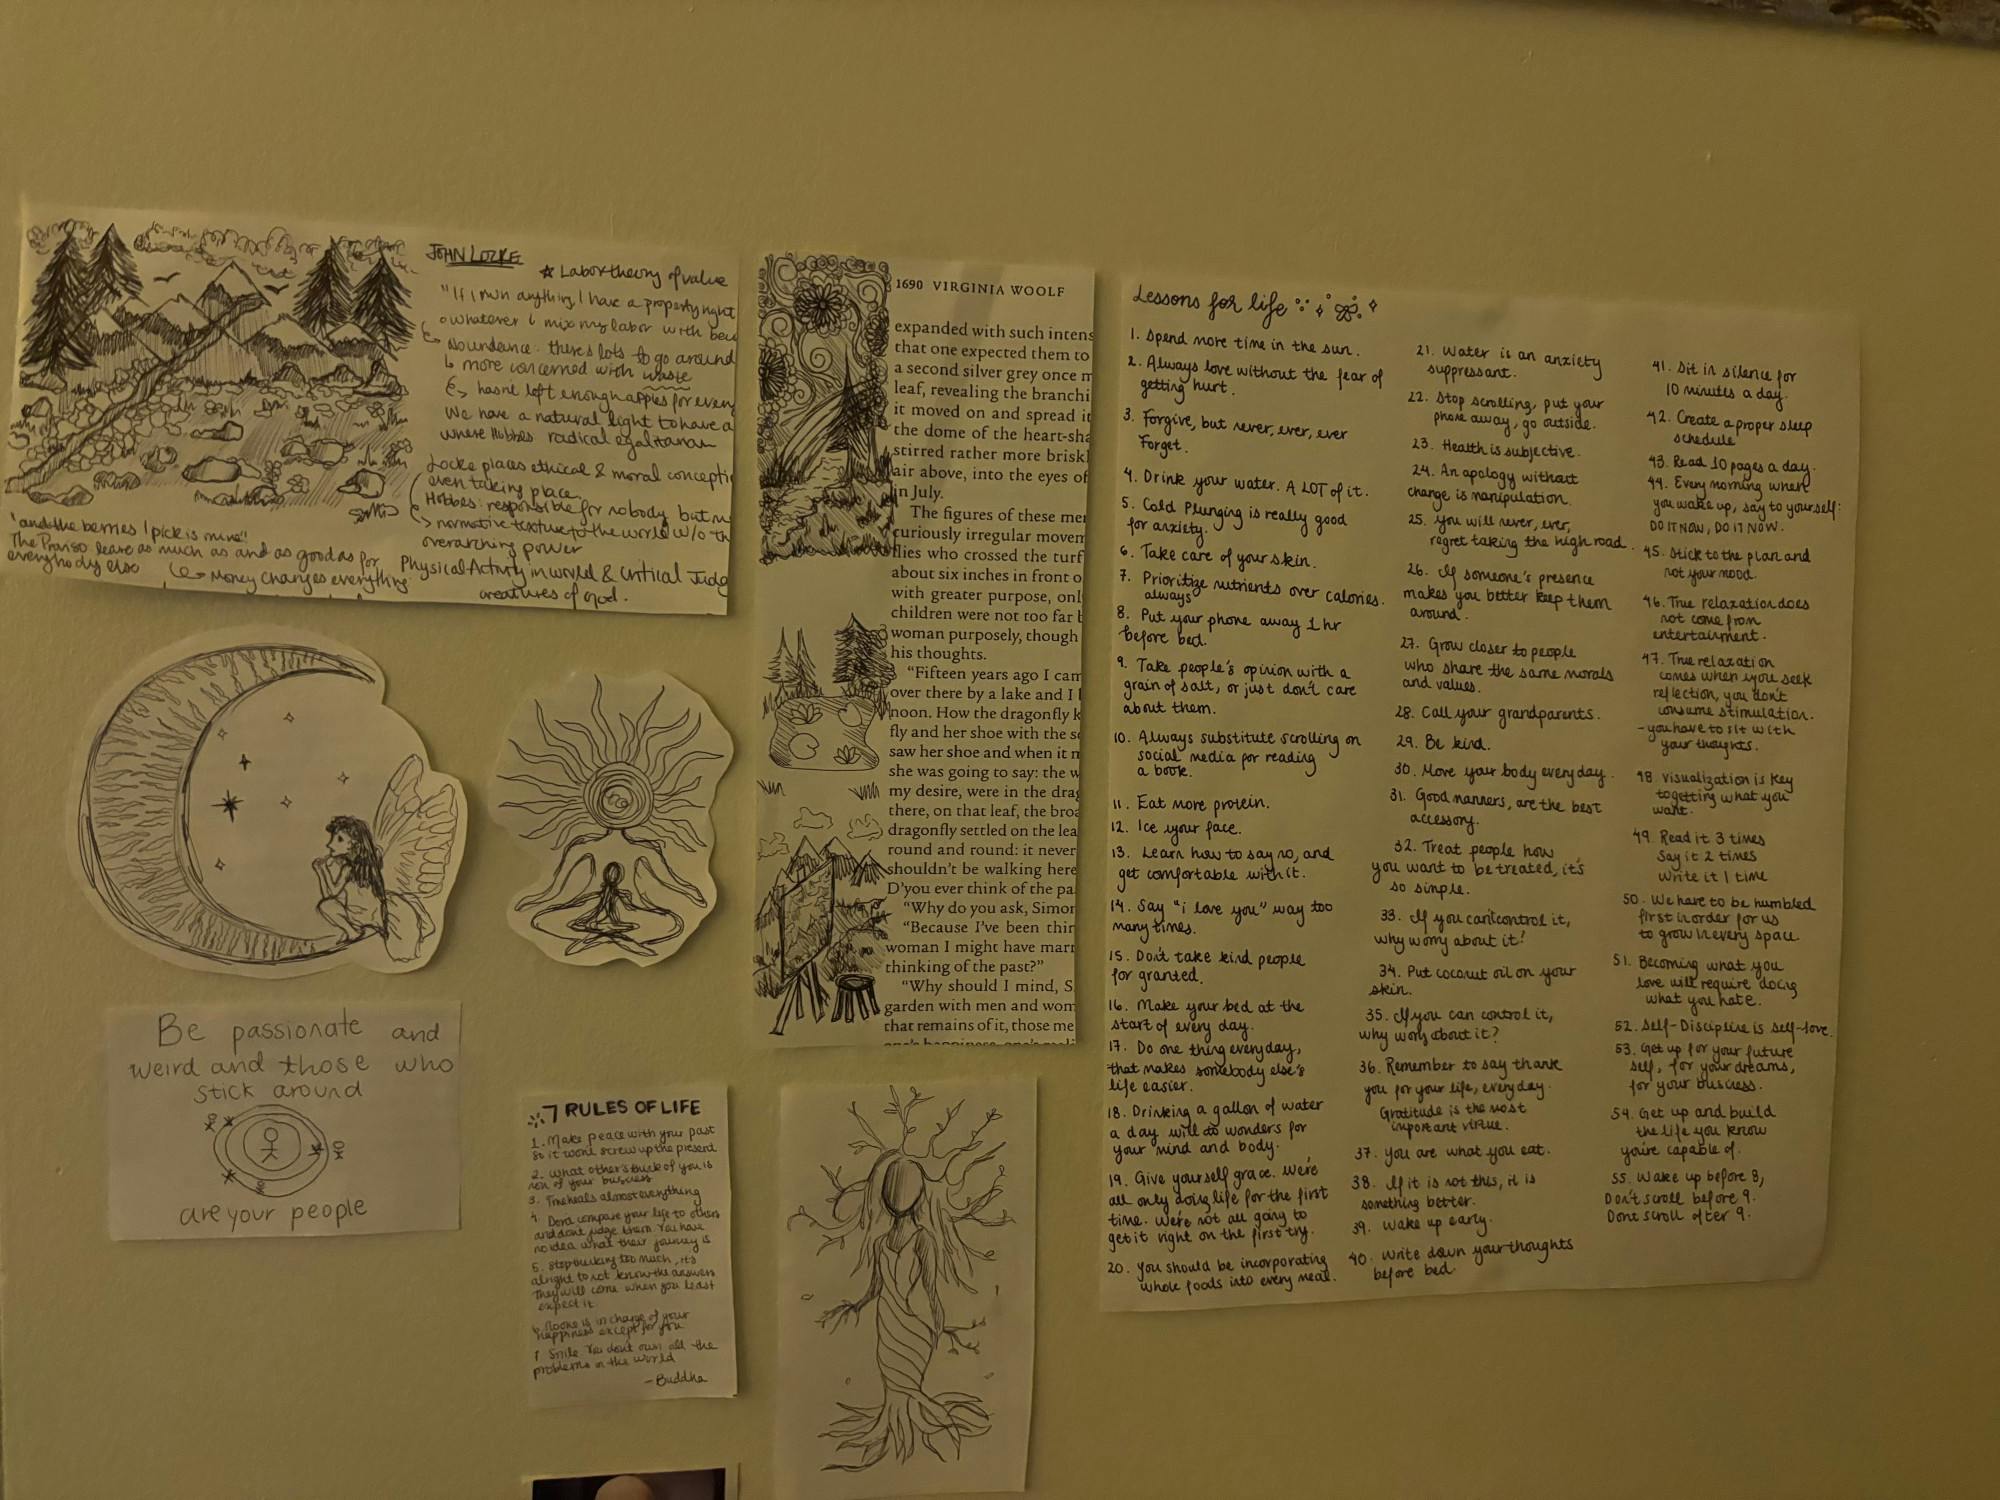 JOHN LOCKE
☆ Labor theory of value
"If I own anything, I have a property right
whatever I mix my labor with
abundance: there's lots to go around
↳ more concerned with waste
↳ hasn't left enough apples for every
We have a natural right to have a
where Hobbes radical egalitarian
Locke places ethical & moral concepti
even taking place.
Hobbes: responsible for nobody but
↳ normative texture to the world w/o th
overarching power
"and the berries I pick is mine"
The Proviso leave as much as and as good as for
everybody else
↳ Money changes everything
Physical Activity in world & Critical Judg
creatures of god.
1690 VIRGINIA WOOLF
expanded with such intens
that one expected them to
a second silver grey once m
leaf, revealing the branchi
it moved on and spread it
the dome of the heart-sha
stirred rather more briskl
air above, into the eyes of
in July.
The figures of these mer
curiously irregular movem
flies who crossed the turf
about six inches in front o
with greater purpose, onl
children were not too far b
woman purposely, though
his thoughts.
"Fifteen years ago I cam
over there by a lake and I
noon. How the dragonfly k
fly and her shoe with the s
saw her shoe and when it m
she was going to say: the w
my desire, were in the drag
there, on that leaf, the broa
dragonfly settled on the lea
round and round: it never
shouldn't be walking here
D'you ever think of the pa
"Why do you ask, Simor
"Because I've been thin
woman I might have marr
thinking of the past?"
"Why should I mind, S
garden with men and wom
that remains of it, those me
Be passionate and
weird and those who
stick around
are your people
7 RULES OF LIFE
1. Make peace with your past
so it wont screw up the present
2. What others think of you is
non of your business
3. Time heals almost everything
4. Dont compare your life to others
and dont judge them. You have
no idea what their journey is
5. Stop thinking too much, it's
alright to not know the answers
They will come when you least
expect it
6. No one is in charge of your
happiness except for you
7 Smile You don't own all the
problems in the world
-Buddha
Lessons for life
1. Spend more time in the sun.
2. Always love without the fear of
getting hurt.
3. Forgive, but never, ever, ever
Forget.
4. Drink your water. A LOT of it.
5. Cold Plunging is really good
for anxiety.
6. Take care of your skin.
7. Prioritize nutrients over calories.
always
8. Put your phone away 1 hr
before bed.
9. Take people's opinion with a
grain of salt, or just don't care
about them.
10. Always substitute scrolling on
social media for reading
a book.
11. Eat more protein.
12. Ice your face.
13. Learn how to say no, and
get comfortable with it.
14. Say "i love you" way too
many times.
15. Don't take kind people
for granted.
16. Make your bed at the
start of every day.
17. Do one thing everyday,
that makes somebody else's
life easier.
18. Drinking a gallon of water
a day will do wonders for
your mind and body.
19. Give yourself grace. We're
all only doing life for the first
time. We're not all going to
get it right on the first try.
20. You should be incorporating
whole foods into every meal.
21. Water is an anxiety
suppressant.
22. Stop scrolling, put your
phone away, go outside.
23. Health is subjective.
24. An apology without
change is manipulation.
25. You will never, ever,
regret taking the high road.
26. If someone's presence
makes you better keep them
around.
27. Grow closer to people
who share the same morals
and values.
28. Call your grandparents.
29. Be kind.
30. Move your body everyday.
31. Good manners, are the best
accessory.
32. Treat people how
you want to be treated, it's
so simple.
33. If you can't control it,
why worry about it?
34. Put coconut oil on your
skin.
35. If you can control it,
why worry about it?
36. Remember to say thank
you for your life, everyday.
Gratitude is the most
important virtue.
37. You are what you eat.
38. If it is not this, it is
something better.
39. Wake up early.
40. Write down your thoughts
before bed.
41. Sit in silence for
10 minutes a day.
42. Create a proper sleep
schedule
43. Read 10 pages a day.
44. Every morning when
you wake up, say to yourself:
DO IT NOW, DO IT NOW.
45. Stick to the plan and
not your mood.
46. True relaxation does
not come from
entertainment.
47. True relaxation
comes when you seek
reflection, you don't
consume stimulation.
- you have to sit with
your thoughts.
48. Visualization is key
to getting what you
want.
49. Read it 3 times
Say it 2 times
Write it 1 time
50. We have to be humbled
first in order for us
to grow in every space.
51. Becoming what you
love will require doing
what you hate.
52. Self-Discipline is self-love.
53. Get up for your future
self, for your dreams,
for your business.
54. Get up and build
the life you know
you're capable of.
55. Wake up before 8,
Don't scroll before 9.
Dont scroll after 9.